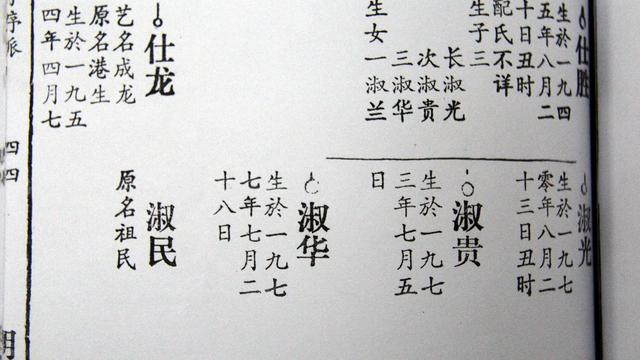 仕胜
生於一九四
五年八月二
十日丑时
配氏不详
生子三
长淑光
次淑贵
三淑华
生女一淑兰
仕龙
艺名成龙
原名港生
生於一九五
四年四月七
淑光
生於一九七
零年八月二
十三日丑时
淑贵
生於一九七
三年七月五
日
淑华
生於一九七
七年七月二
十八日
淑民
原名祖民
序派
四四